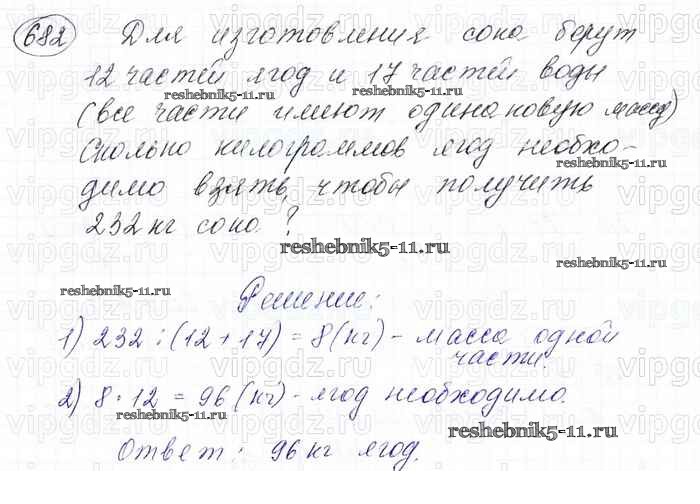 682 Для изготовления сока берут
12 частей ягод и 17 частей воды
reshebnik5-11.ru reshebnik5-11.ru
(все части имеют одинаковую массу)
Сколько килограммов ягод необхо-
reshebnik5-11.ru
димо взять, чтобы получить
232 кг сока?
reshebnik5-11.ru
reshebnik5-11.ru reshebnik5-11.ru
Решение:
1) 232 : (12 + 17) = 8 (кг) - масса одной
части.
2) 8 · 12 = 96 (кг) - ягод необходимо.
reshebnik5-11.ru reshebnik5-11.ru
Ответ: 96 кг ягод.